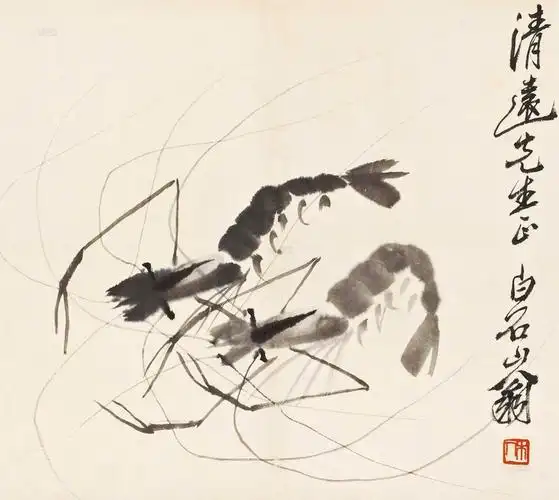 清远先生正 白石山翁